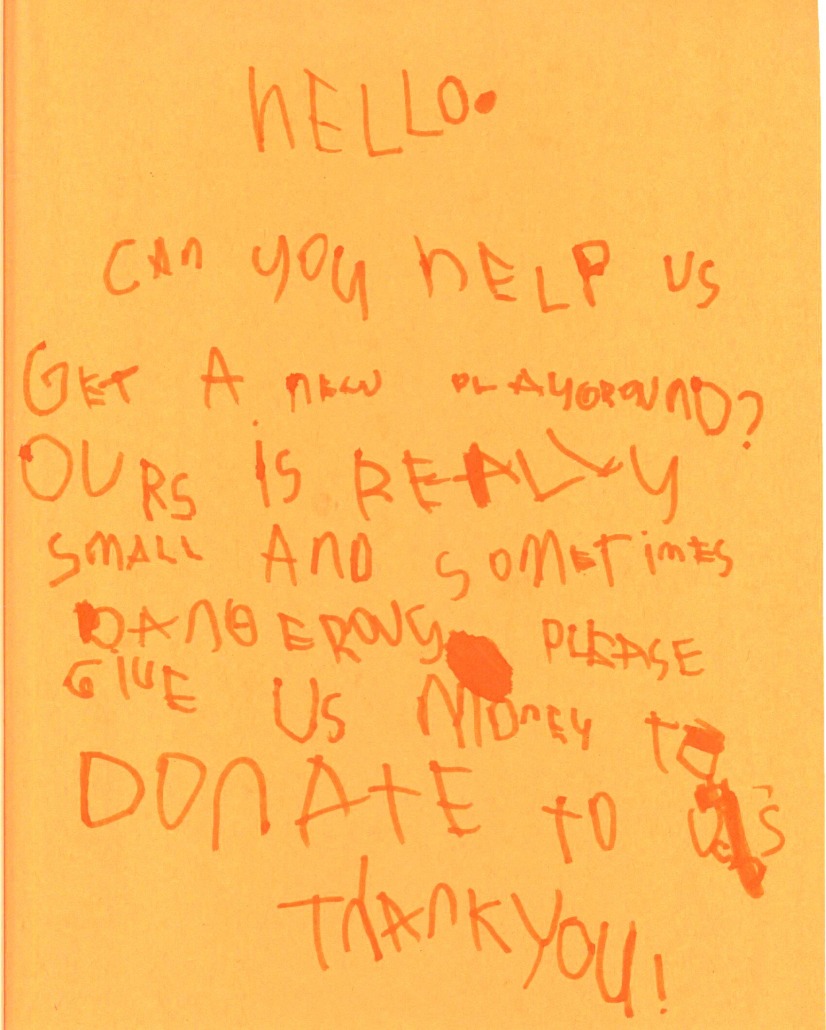 hELLO.
CAn YOU hELP US
GET A nEW PLAYGROUND?
OURS iS REALLY
SMALL AND SOMETimES
DANGEROUS. PLEASE
GIVE US MOnEY tO
DOnATE tO US
ThAnK YOU!